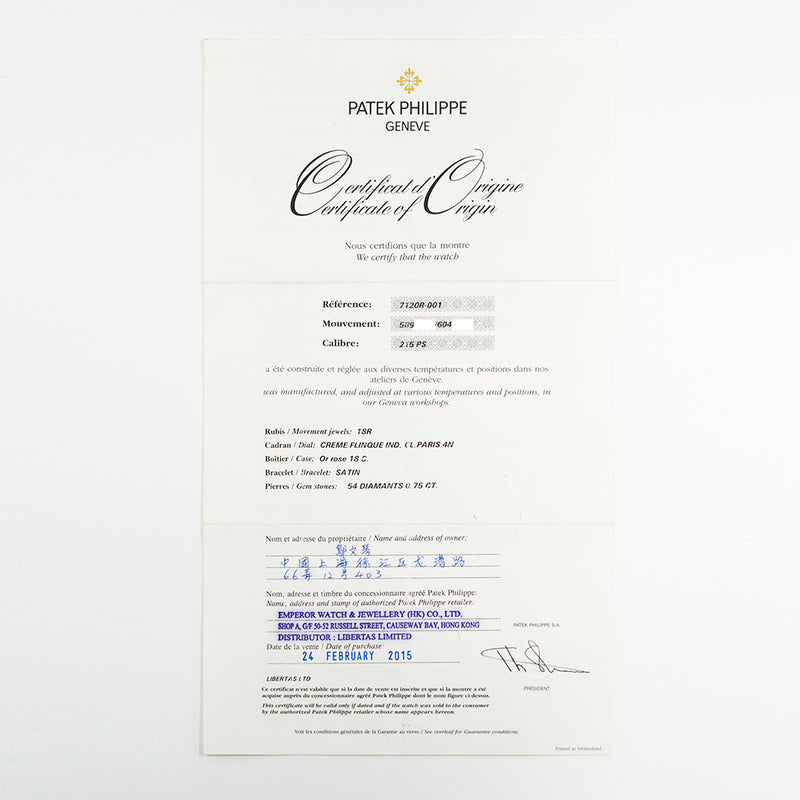 PATEK PHILIPPE
GENEVE
Certificat d'Origine
Certificate of Origin
Nous certifions que la montre
We certify that the watch
Référence: 7120R-001
Mouvement: 589 /604
Calibre: 215 PS
a été construite et réglée aux diverses températures et positions dans nos
ateliers de Genève.
was manufactured, and adjusted at various temperatures and positions, in
our Geneva workshops.
Rubis / Movement jewels: 18R
Cadran / Dial: CREME FLINQUE IND. CL.PARIS 4N
Boîtier / Case: Or rose 18 C.
Bracelet / Bracelet: SATIN
Pierres / Gem stones: 54 DIAMANTS 0.75 CT.
Nom et adresse du propriétaire / Name and address of owner:
文琴
中國上海徐汇区龙漕路
66弄12号403
Nom, adresse et timbre du concessionnaire agréé Patek Philippe:
Name, address and stamp of authorized Patek Philippe retailer:
EMPEROR WATCH & JEWELLERY (HK) CO., LTD.
SHOP A, G/F 50-52 RUSSELL STREET, CAUSEWAY BAY, HONG KONG
DISTRIBUTOR : LIBERTAS LIMITED
Date de la vente / Date of purchase:
24 FEBRUARY 2015
PATEK PHILIPPE S.A.
PRÉSIDENT
LIBERTAS LTD
Ce certificat n'est valable que si la date de vente est inscrite et que si la montre a été
acquise auprès du concessionnaire agréé Patek Philippe dont le nom figure ci-dessus.
This certificate will be valid only if dated and if the watch was sold to the consumer
by the authorized Patek Philippe retailer whose name appears hereon.
Voir les conditions générales de la Garantie au verso / See overleaf for Guarantee conditions
Printed in Switzerland